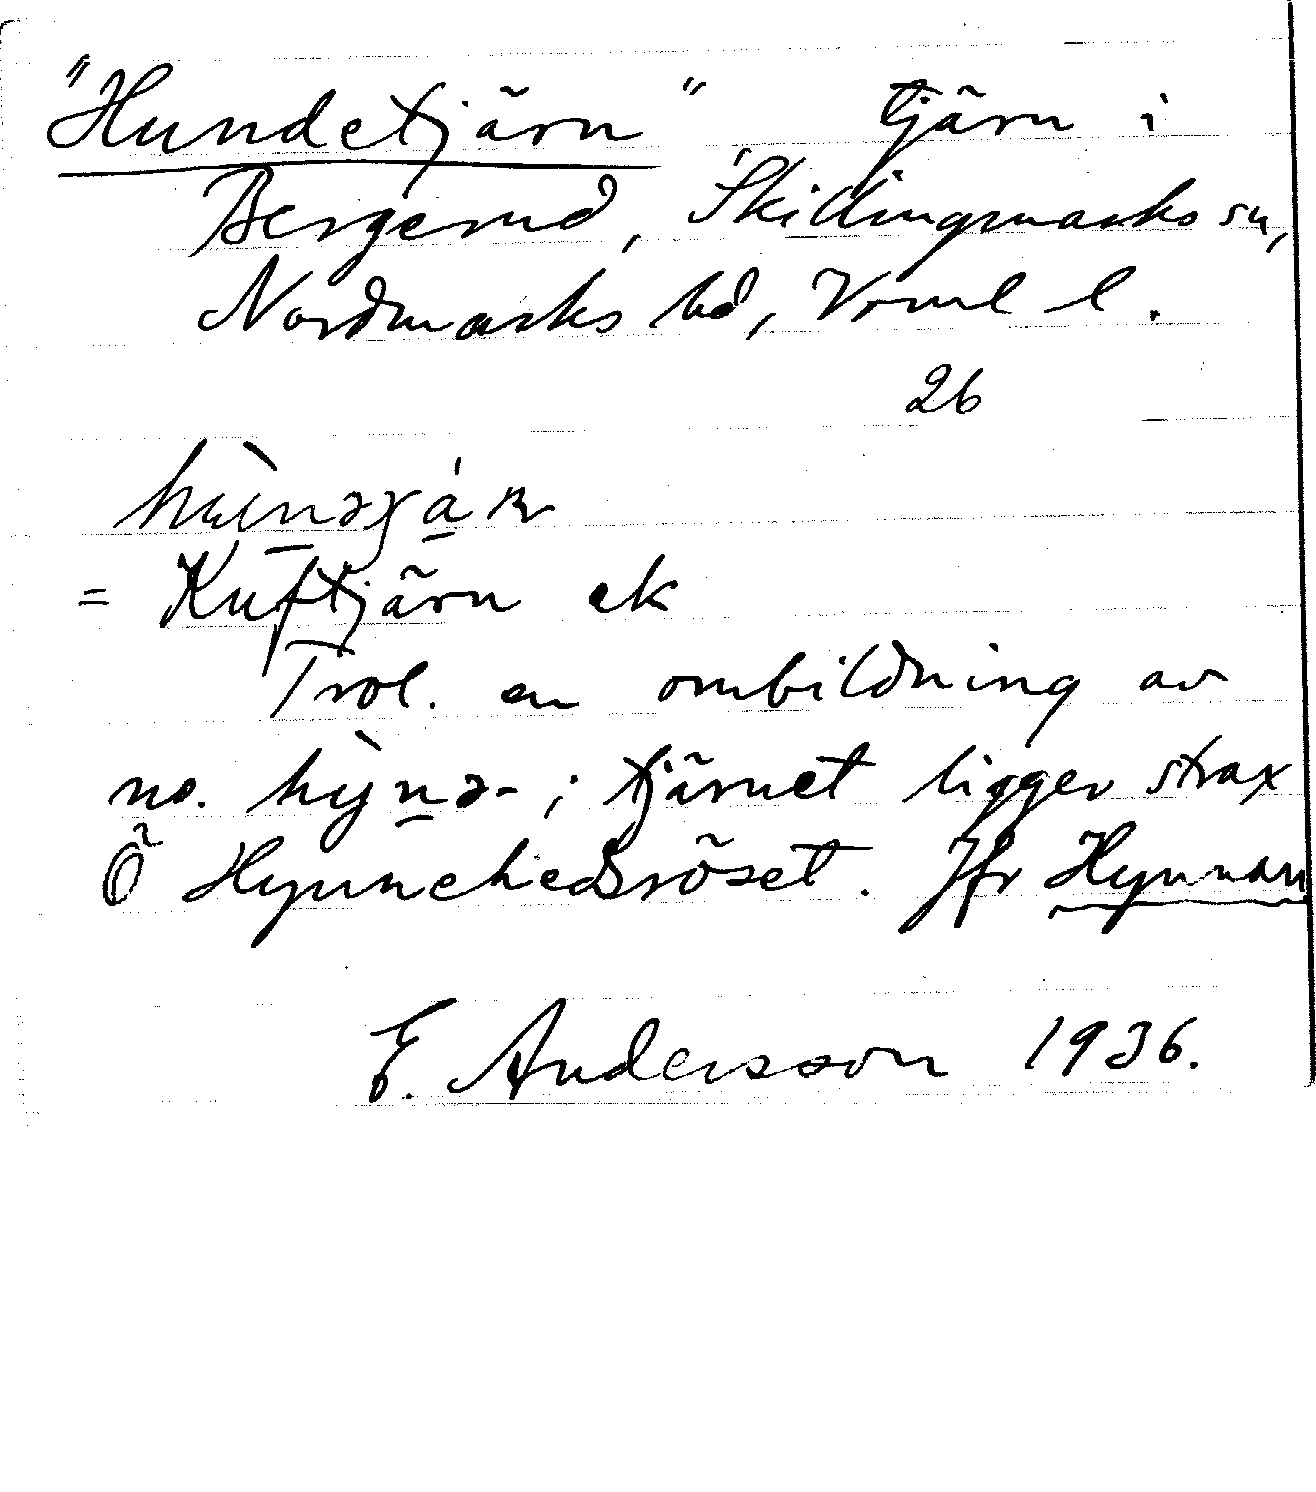 "Hundetjärn" tjärn i
Bergerud, Skillingmarks sn,
Nordmarks hd, Vrml l.
26
= Kuftjärn ek
Trol. en ombildning av
no. hỳnə- ; tjärnet ligger strax
Ö Hynnehedsröset. Jfr Hynnan
E. Andersson 1936.